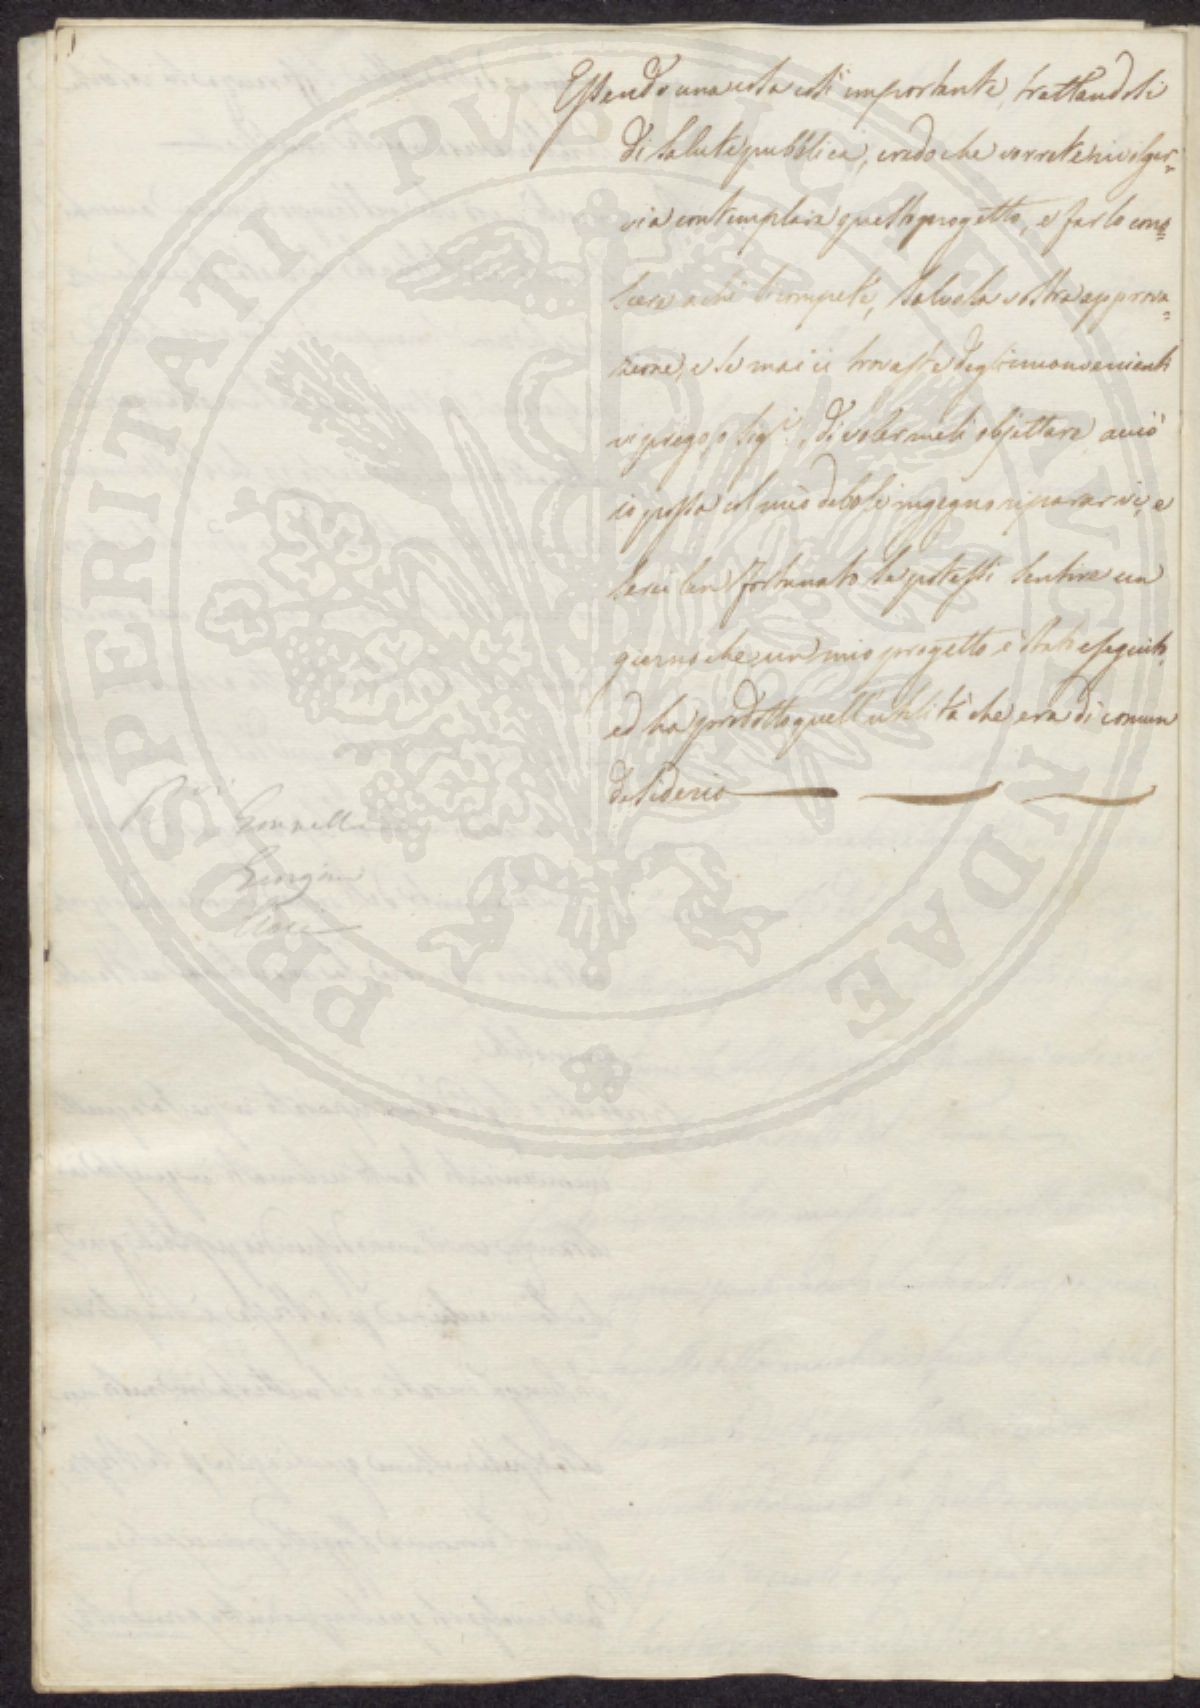 Essendo una cosa così importante, trattandosi
di Salute pubblica, credo che vorrete rivolger=
vi a contemplare questo progetto, e farlo cono=
scere a chi compete, salvo la vostra approva=
zione, e se mai ci trovaste degli inconvenienti
vi prego, o Sig.ri, di volermeli objettare acciò
io possa col mio debole ingegno ripararvi, e
sarei ben fortunato se potessi sentire un
giorno che un mio progetto è stato eseguito,
ed ha prodotto quell'utilità che era di comun
desiderio
Gonnelli
Giorgini
PROSPERITATI PVBLICAE AVGENDAE